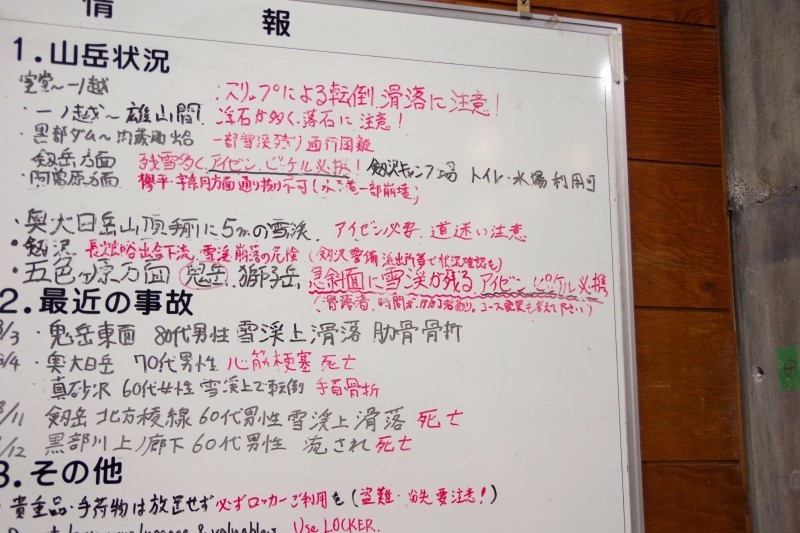 情 報
1.山岳状況
室堂~一ノ越 :スリップによる転倒、滑落に注意!
・一ノ越~雄山間 浮石が多く、落石に注意!
・黒部ダム~内蔵助出合 一部雪渓残り通行困難
劔岳方面 残雪多く、アイゼン、ピッケル必携! 劔沢キャンプ場 トイレ・水場利用可
・阿曽原方面 欅平・宇奈月方面通り抜け不可(水平道一部崩壊)
・奥大日岳山頂手前に5mの雪渓、アイゼン必要、道迷い注意
・劔沢 長次郎谷出合下流、雪渓崩落の危険(劔沢警備派出所等で状況確認を)
・五色ヶ原方面 鬼岳、獅子岳 急斜面に雪渓が残る、アイゼン、ピッケル必携
(滑落者、コース変更も考えて下さい)
2.最近の事故
/3 ・鬼岳東面 80代男性 雪渓上滑落 肋骨骨折
/4 ・奥大日岳 70代男性 心筋梗塞 死亡
真砂沢 60代女性 雪渓上で転倒 手首骨折
/11 劔岳 北方稜線 60代男性 雪渓上滑落 死亡
/12 黒部川上ノ廊下 60代男性 流され死亡
3.その他
・貴重品・手荷物は放置せず必ずロッカーご利用を(盗難・紛失要注意!)
luggage & valuables Use LOCKER.